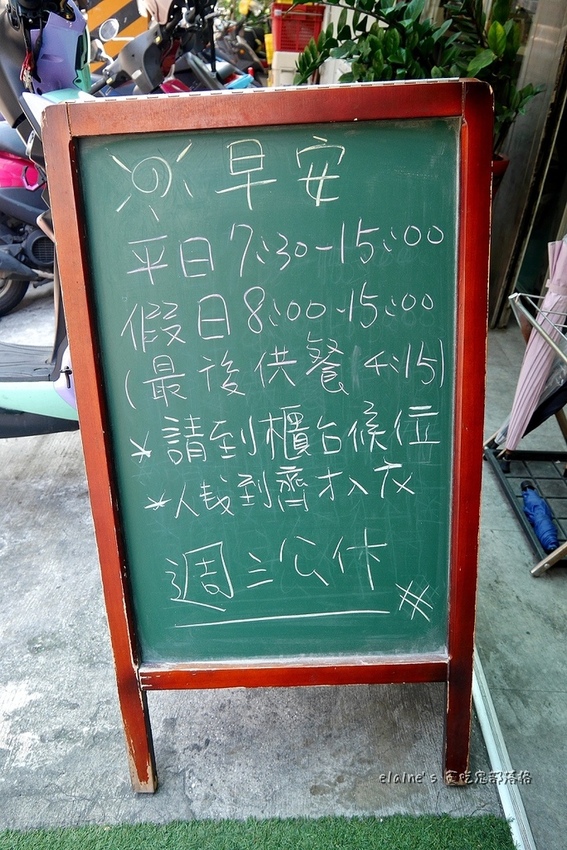 早安
平日 7:30-15:00
假日 8:00-15:00
(最後供餐 14:15)
*請到櫃台候位
*人到齊才入
週三公休 #
elaine's 貪吃鬼部落格